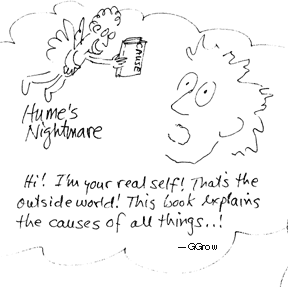 CAUSE
Hume's
Nightmare
Hi! I'm your real self! That's the
outside world! This book explains
the causes of all things..!
—GGrow